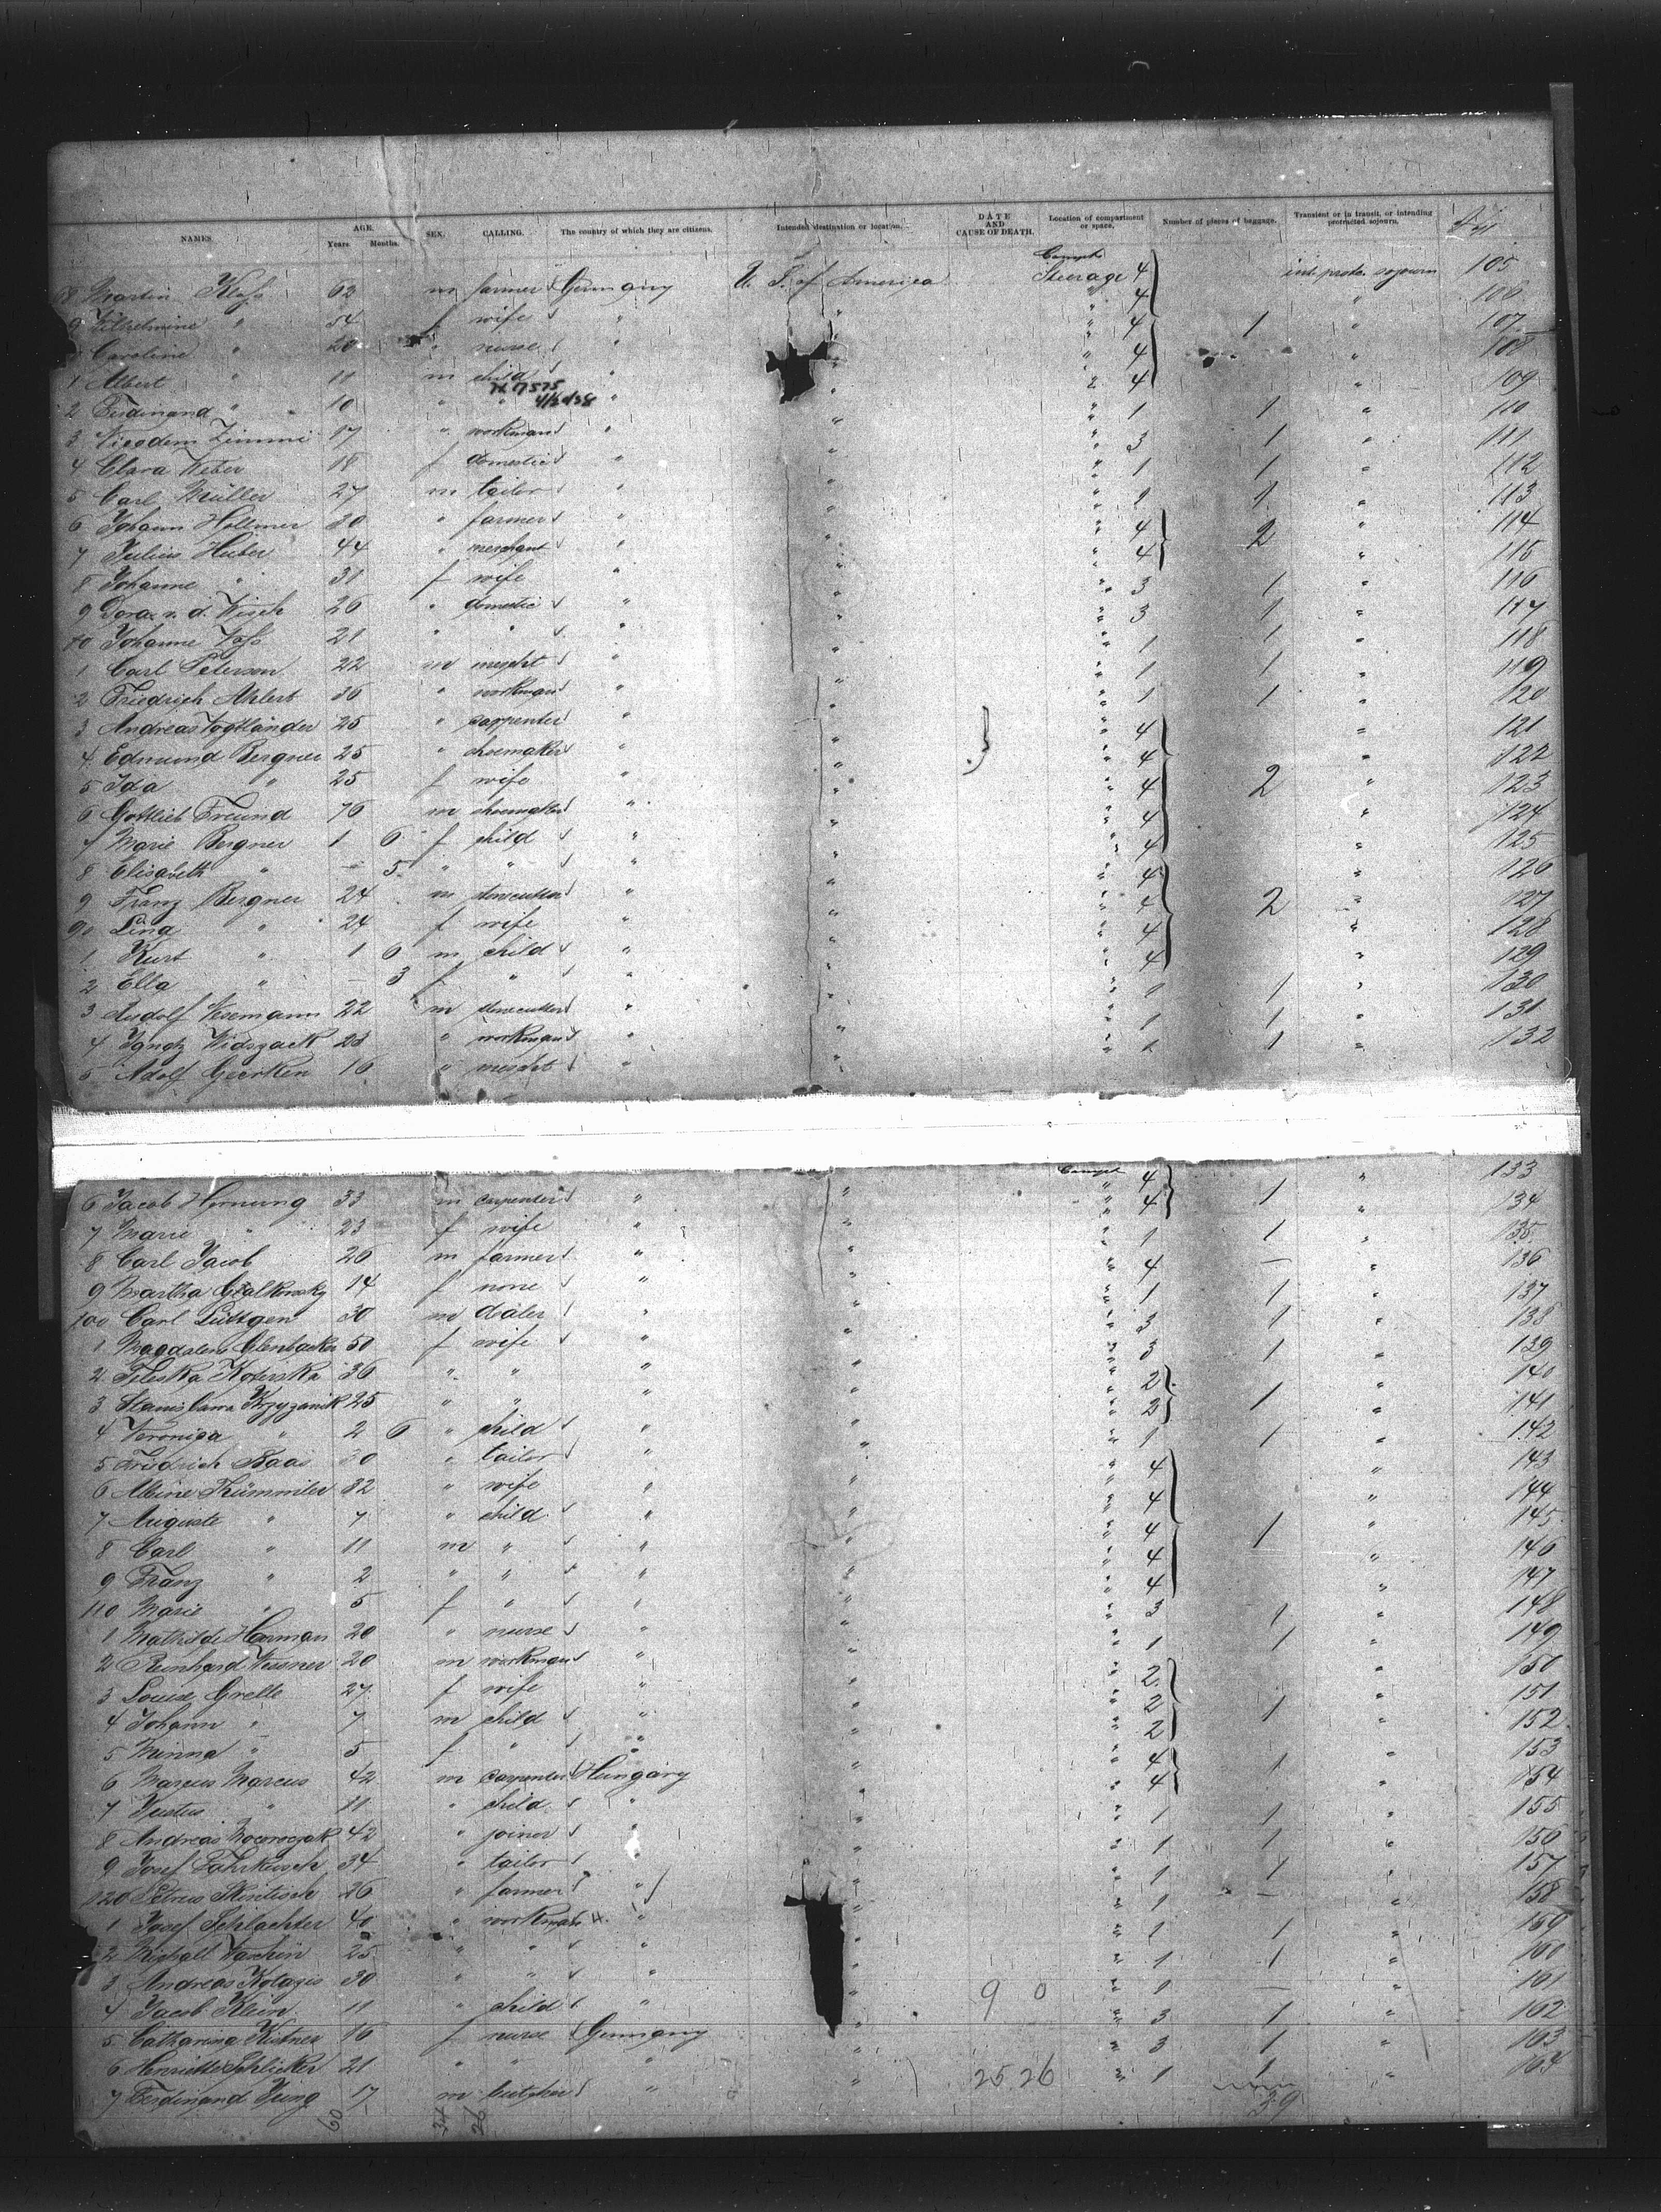 NAMES. AGE. Years Months. SEX. CALLING. The country of which they are citizens. Intended destination or location. DATE AND CAUSE OF DEATH. Location of compartment or space. Number of pieces of baggage. Transient or in transit, or intending protracted sojourn.
8 Martin 62 m farmer Germany U. S. of America Compt Steerage 4 int. protr. sojourn 105
9 Wilhelmine " 54 f wife " " " 4 " 106
Caroline " 20 " nurse " " " 4 1 " 107
1 Albert " 11 m child " " 4 " 108
2 Ferdinand " 10 " " " " 4 " 109
3 Zimmi 17 " workman " " " 1 1 " 110
4 Clara Weber 18 f domestic " " " 3 1 " 111
5 Carl Müller 27 m tailor " " " 1 1 " 112
6 Johann Hollmer 30 " farmer " " " 1 1 " 113
7 Julius Huber 44 " merchant " " " 4 2 " 114
8 Johanne " 31 f wife " " " 4 " 115
9 Dora v. d. Wisch 26 " domestic " " " 3 1 " 116
80 Johanne 21 " " " " " 3 1 " 117
1 Carl Peterson 22 m mercht " " " 1 1 " 118
2 Friedrich Ahlert 36 " workman " " " 1 1 " 119
3 Andreas Vogtländer 25 " carpenter " " " 1 1 " 120
4 Edmund Bergner 25 " shoemaker " " " 4 " 121
5 Ida " 25 f wife " " " 4 " 122
6 Gottlieb Freund 76 m shoemaker " " " 4 2 " 123
7 Marie Bergner 1 6 f child " " " 4 " 124
8 Elisabeth " - 5 " " " " " 4 " 125
9 Franz Bergner 24 m stonecutter " " " 4 " 126
90 Lina " 24 f wife " " " 4 2 " 127
1 Kurt " 1 6 m child " " " 4 " 128
2 Ella " - 3 f " " " " 4 " 129
3 Rudolf Wesemann 22 m stonecutter " " " 1 1 " 130
4 Ignatz 23 " workman " " " 1 1 " 131
5 Adolf Geerken 16 " mercht " " " 1 1 " 132
6 Jacob Hornung 33 m carpenter " " Compt " 4 1 " 133
7 Marie " 23 f wife " " " 4 " 134
8 Carl Jacob 26 m farmer " " " 1 1 " 135
9 Martha 14 f none " " " 4 - 136
100 Carl Lüttgen 30 m " " " 1 1 " 137
1 Magdalena 50 f wife " " " 3 1 " 138
2 36 " " " " " 3 1 " 139
3 Krzyzaniak 25 " " " " " 2 1 " 140
4 Veronica " 2 6 " child " " " 2 " 141
5 Friedrich Baas 30 " tailor " " " 1 1 " 142
6 Albine 32 " wife " " " 4 " 143
7 Auguste " 7 " child " " " 4 " 144
8 Carl " 11 m " " " " 4 1 " 145
9 Franz " 2 " " " " " 4 " 146
110 Marie " 5 f " " " " 4 " 147
1 Mathilde Harman 20 " nurse " " " 3 1 " 148
2 Reinhard Wessner 20 m workman " " " 1 1 " 149
3 Louise Grelle 27 f wife " " " 2 " 150
4 Johann " 7 m child " " " 2 1 " 151
5 Minna " 5 f " " " " 2 " 152
6 Marcus Marcus 42 m carpenter Hungary " " 4 1 " 153
7 Justus " 11 " child " " " 4 " 154
8 Andreas 42 " joiner " " " 1 1 " 155
9 Josef 34 " tailor " " " 1 1 " 156
120 Petrus 26 " farmer " " " 1 1 " 157
1 Josef Schlachter 40 " workman " " " 1 - " 158
2 25 " " " " " 1 1 " 159
3 Andreas 30 " " " " " 1 1 " 160
4 Jacob Klein 11 " child " " 9 0 " 1 - " 161
5 Catharina 16 f nurse Germany " " 3 1 " 162
6 Henriette Schlicker 21 " " " " " 3 1 " 163
7 Ferdinand Jung 17 m butcher " " 25 26 " 1 1 " 164
60 34 26 39